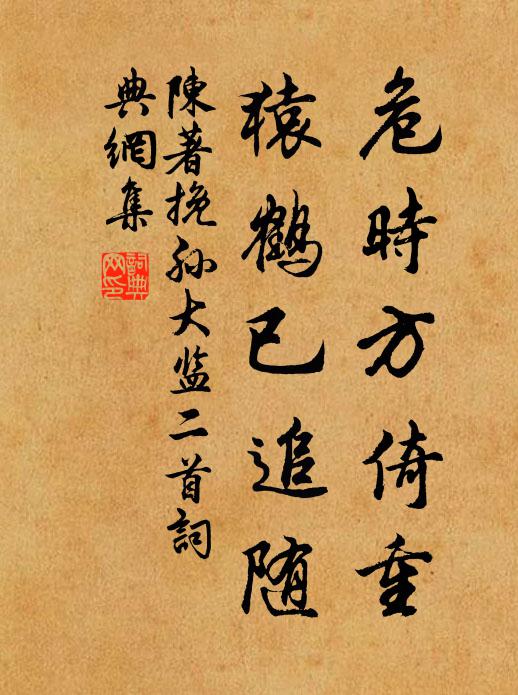 危時方倚重
猿鶴已追隨
陳著挽孫大监二首詞
典網集
詞典網印